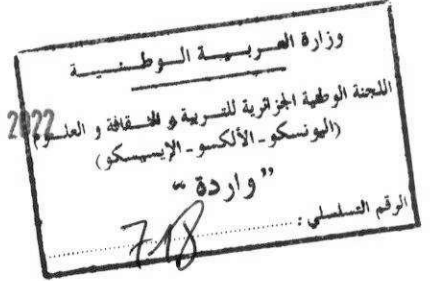 وزارة التربيــة الـوطـنيــة
اللجنة الوطنية الجزائرية للتــربية و الثقافة و العلــوم
2022
(اليونسكو - الألكسو - الإيسيسكو)
"واردة"
الرقم التسلسلي : 718